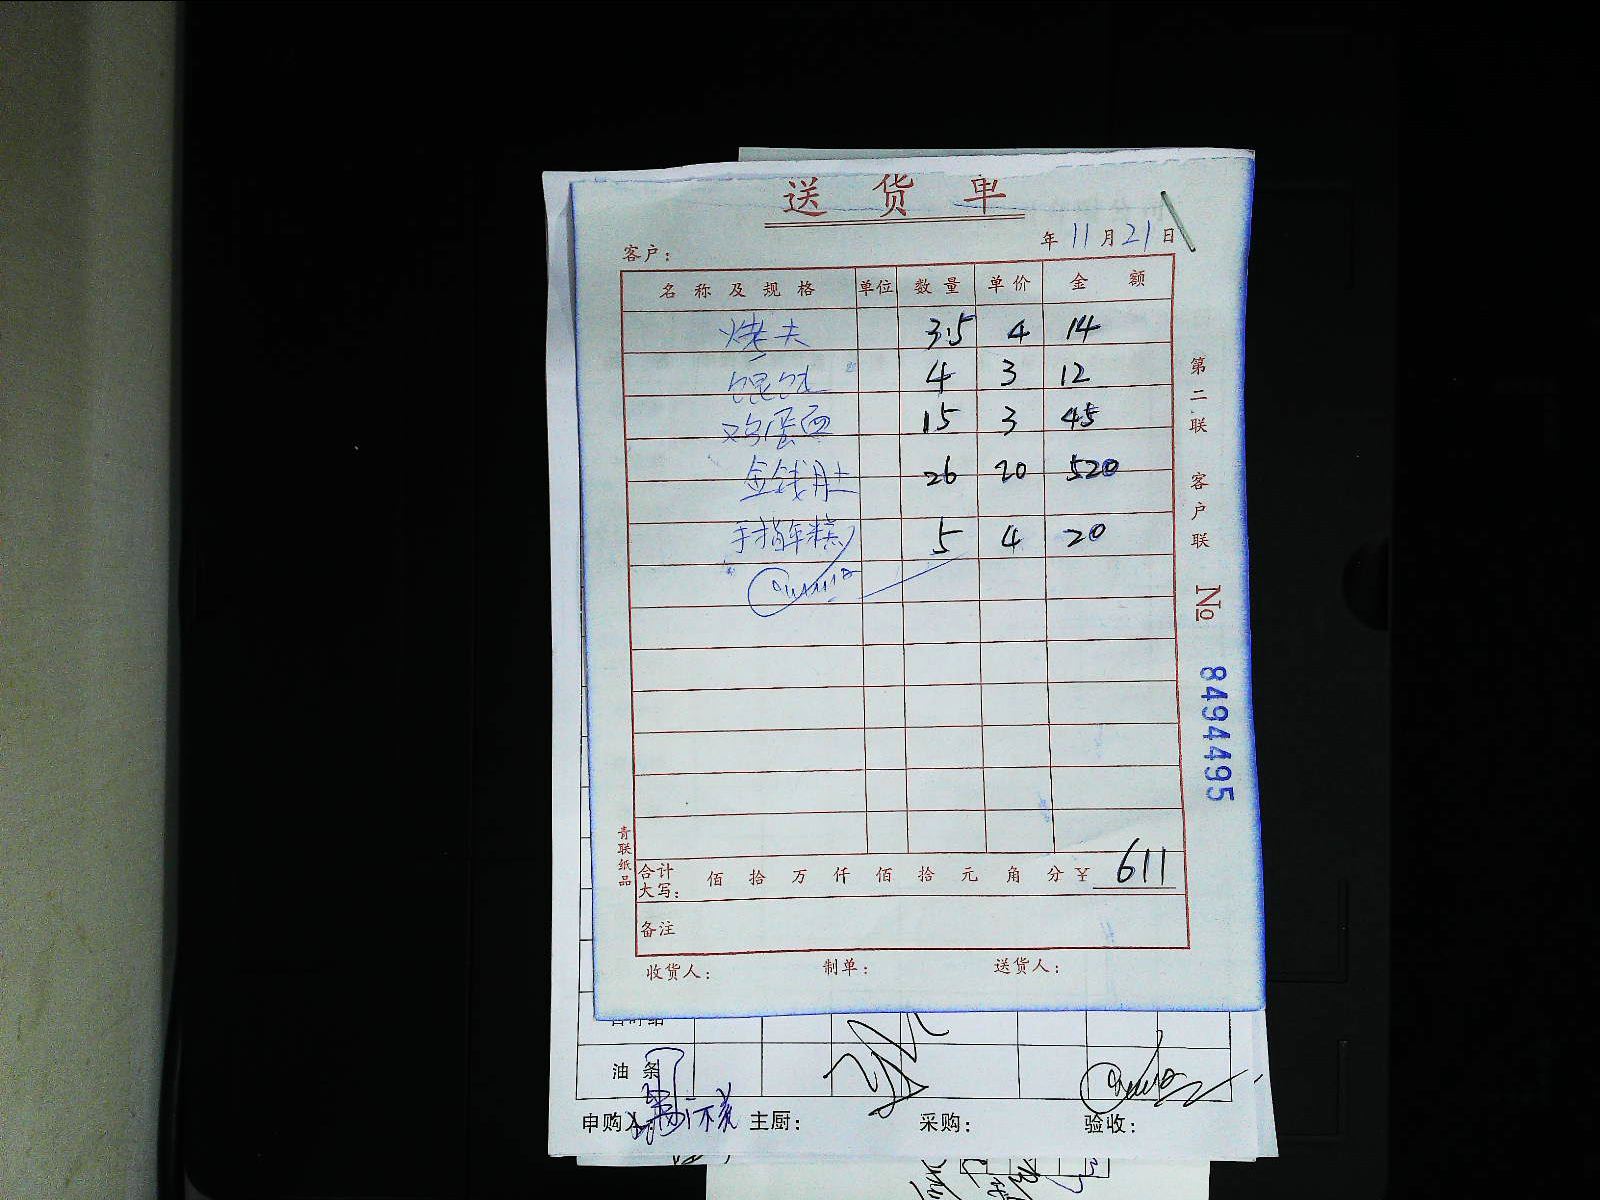 送货单
客户： 年 11 月 21 日
名称及规格 单位 数量 单价 金额
烤夫 3.5 4 14
馄饨 4 3 12
鸡蛋面 15 3 45
金钱肚 26 20 520
手指年糕 5 4 20
合计大写： 佰 拾 万 仟 佰 拾 元 角 分 ¥ 611
备注
收货人： 制单： 送货人：
第二联 客户联
№ 8494495
青联纸品
油条
申购人 主厨： 采购： 验收：